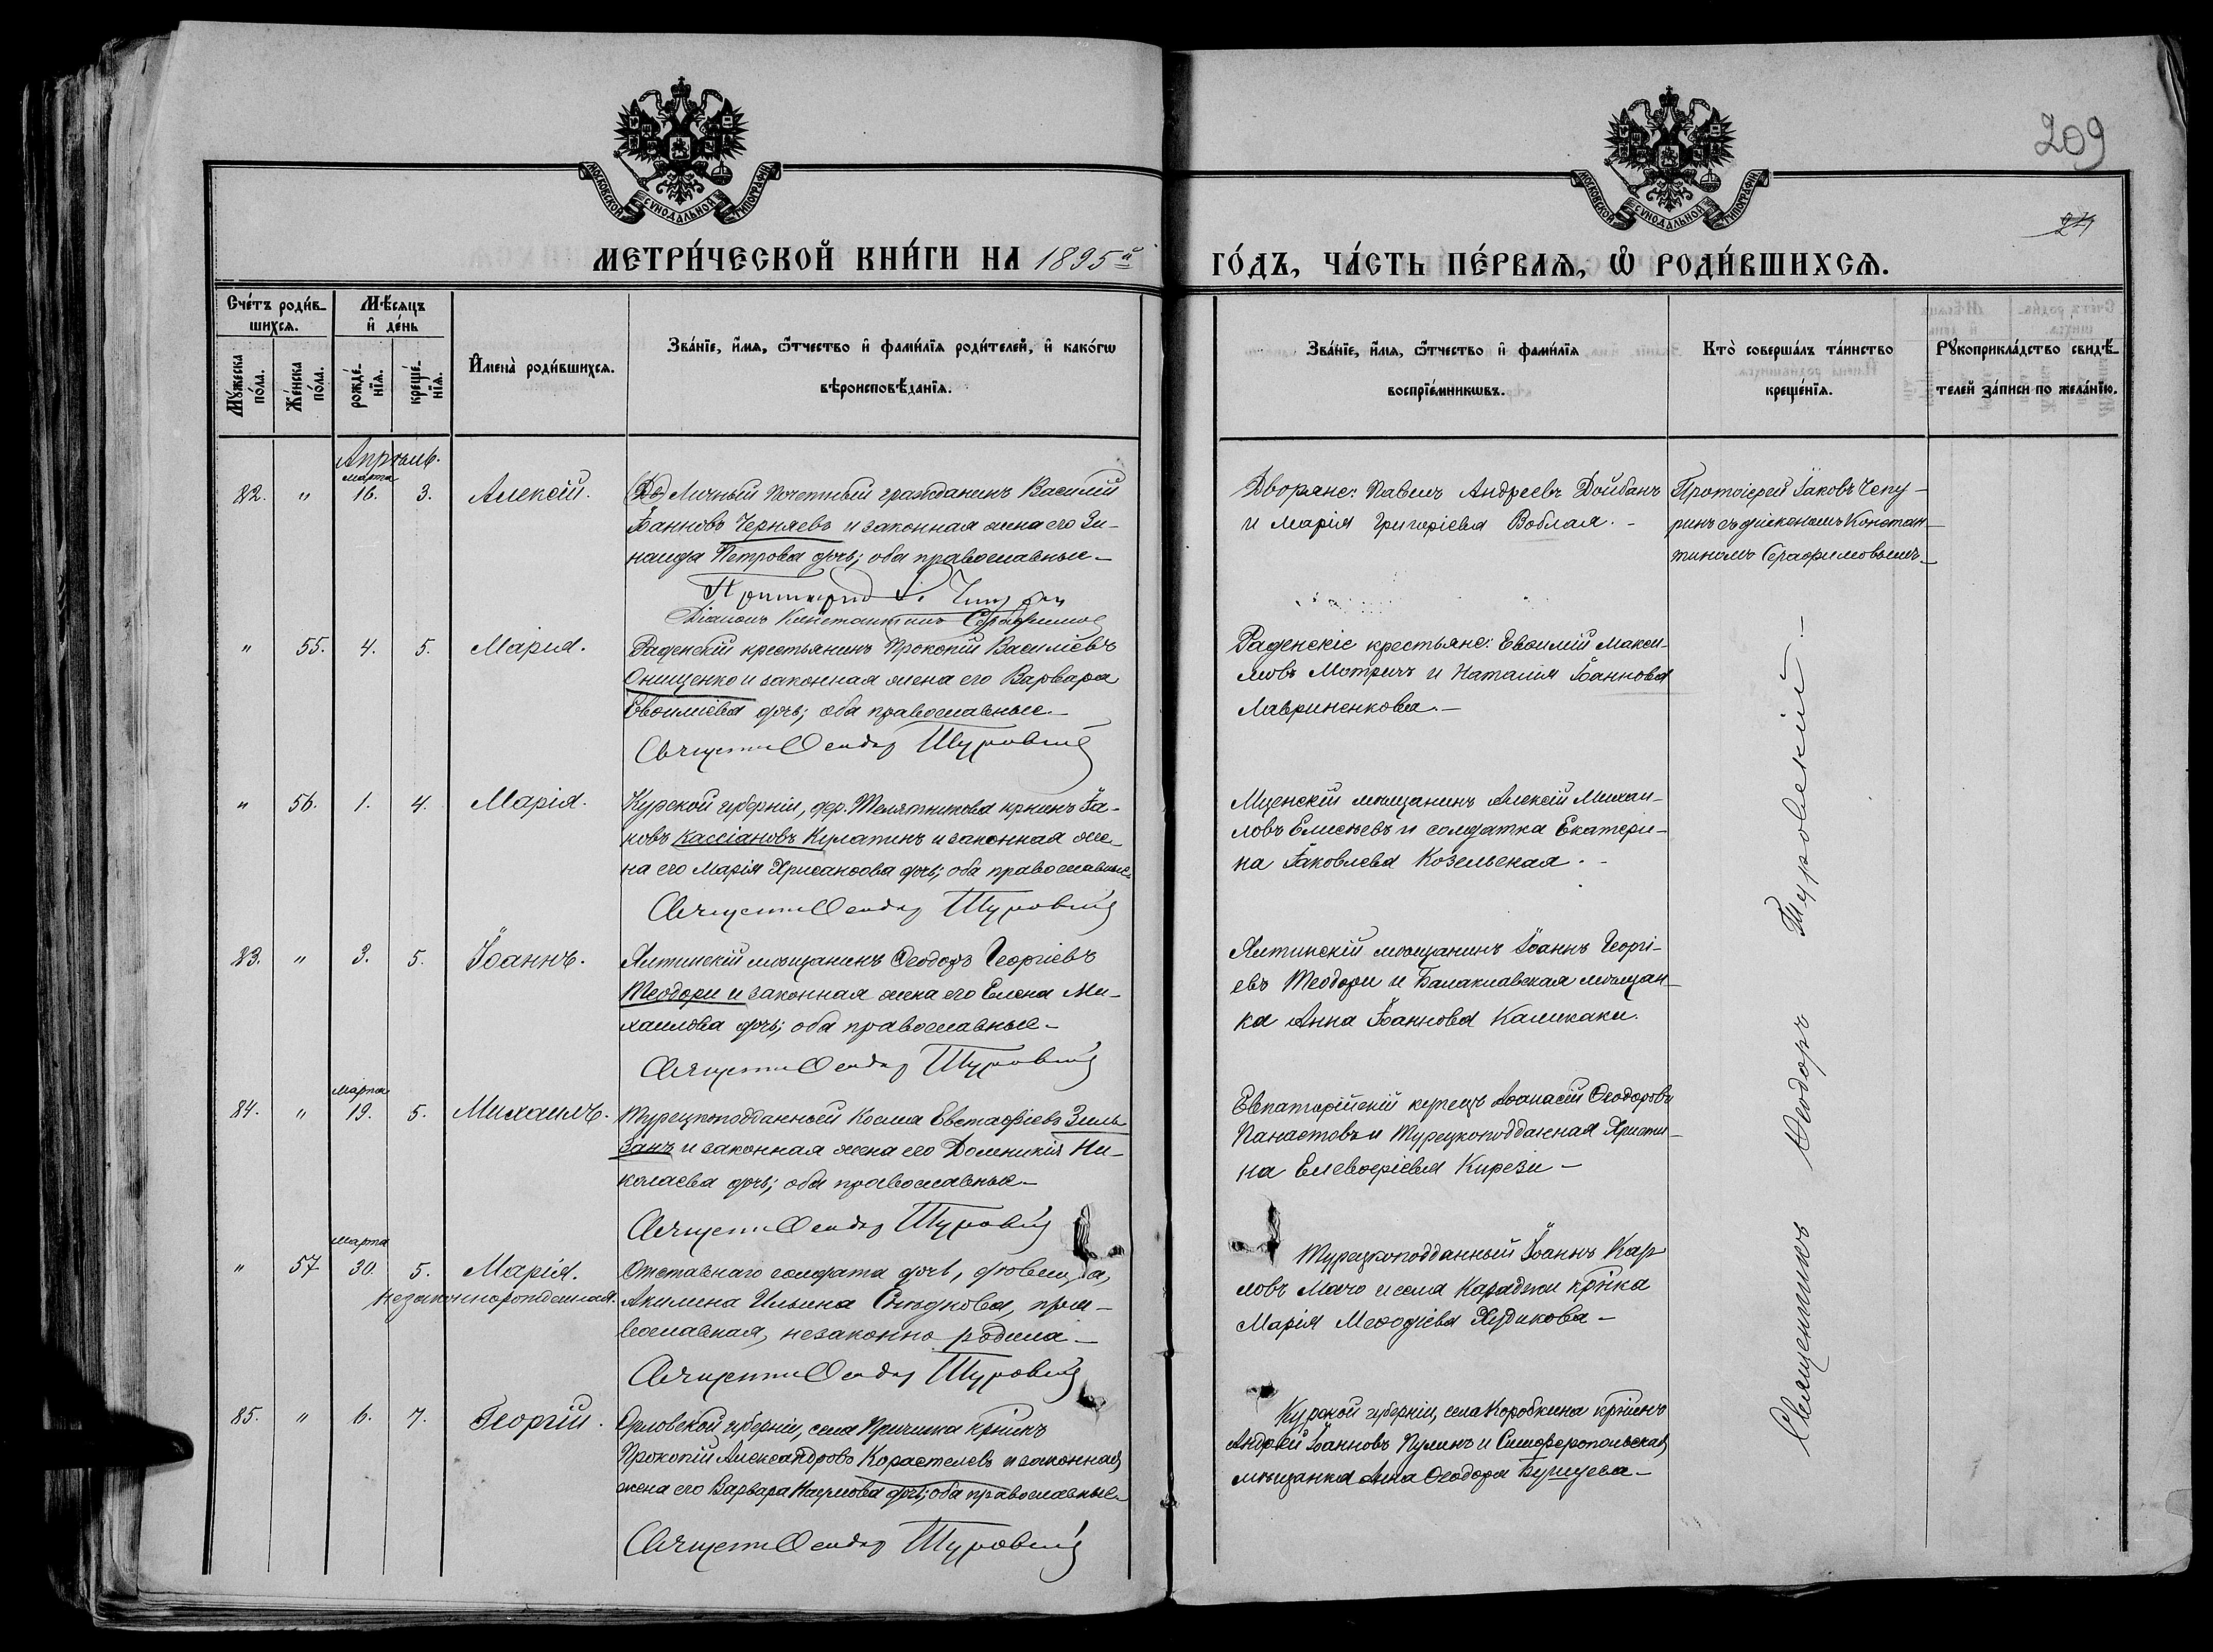 209
24
МОСКОВСКОЙ СѴНОДАЛЬНОЙ ТИПОГРАФІИ
МОСКОВСКОЙ СѴНОДАЛЬНОЙ ТИПОГРАФІИ
МЕТРИ́ЧЕСКОЙ КНИ́ГИ НА 1895й ГО́ДЪ, ЧА́СТЬ ПЕ́РВАѦ, Ѡ҆ РОДИ́ВШИХСѦ.
Сче́тъ роди́в-
шихсѧ.
Мꙋ́жеска по́ла.
Же́нска по́ла.
Мѣ́сѧцъ
и҆ де́нь
рожде́-
нїѧ.
креще́-
нїѧ.
И҆мена̀ роди́вшихсѧ.
Зва́нїе, и҆́мѧ, ѻ҆́тчество и҆ фами́лїѧ роди́телей, и҆ како́гѡ
вѣроисповѣ́данїѧ.
Зва́нїе, и҆́мѧ, ѻ҆́тчество и҆ фами́лїѧ
воспрїе́мникѡвъ.
Кто̀ соверша́лъ та́инство
креще́нїѧ.
Рꙋкоприкла́дство свидѣ́-
телей за́писи по жела́нїю.
Апрѣль.
марта
82. " 16. 3. Алексій. Личный почетный гражданинъ Василій
Іоанновъ Черняевъ и законная жена его Зи-
наида Петрова дочь; оба православные –
Діаконъ Константинъ Серафимов
Дворяне: Павелъ Андреевъ Дойбанъ
и Марія Григоріева Воблая. –
Протоіерей Іаковъ Чепу-
ринъ съ діакономъ Констан-
тиномъ Серафимовымъ –
" 55. 4. 5. Марія. Раденскій крестьянинъ Прокопій Василіевъ
Онищенко и законная жена его Варвара
Евѳиміева дочь; оба православные. –
Священн Ѳеодор Туровскій
Раденскіе крестьяне: Евѳимій Макси-
мовъ Мотричъ и Наталія Іоаннова
Лавриненкова. –
" 56. 1. 4. Марія. Курской губерніи, дер. Телятникова кр҃нинъ Іа-
ковъ Кассіановъ Кулатинъ и законная же-
на его Марія Хрисанѳова дочь; оба православные
Священн Ѳеодор Туровскій
Мценскій мѣщанинъ Алексій Михаи-
ловъ Елисѣевъ и солдатка Екатери-
на Іаковлева Козельская. –
83. " 3. 5. Іоаннъ. Ялтинскій мѣщанинъ Ѳеодоръ Георгіевъ
Теодори и законная жена его Елена Ми-
хаилова дочь; оба православные –
Священн Ѳеодор Туровскій
Ялтинскій мѣщанинъ Іоаннъ Георгі-
евъ Теодори и Балаклавская мѣщан-
ка Анна Іоаннова Каликаки.
марта
84. " 19. 5. Михаилъ. Турецкоподданный Косма Евстафіевъ Зиль
банъ и законная жена его Домникія Ни-
колаева дочь; оба православные –
Священн Ѳеодор Туровскій
Евпаторійскій купецъ Аѳанасій Ѳеодоровъ
Панаетовъ и Турецкоподданная Христи-
на Елевѳеріева Кирези –
марта
" 57 30. 5. Марія. Отставнаго солдата дочь,
незаконнорожденная. Акилина Ильина Сѣдкова, пра-
вославная, незаконно родила –
Священн Ѳеодор Туровскій
Турецкоподданный Іоаннъ Кар
ловъ Мачо и села Караджи кр҃нка
Марія Меѳодіева Хурдикова –
85. " 6. 7. Георгій. Орловской губерніи, села кр҃нинъ
Прокопій Александровъ Корастелевъ и законная
жена его Варвара Наумова дочь; оба православные –
Священн Ѳеодор Туровскій
Курской губерніи, села Коробкина кр҃нинъ
Андрей Іоанновъ Пулинъ и Симферопольская
мѣщанка Анна Ѳеодора Бущуева –
Священникъ Ѳеодоръ Туровскій –